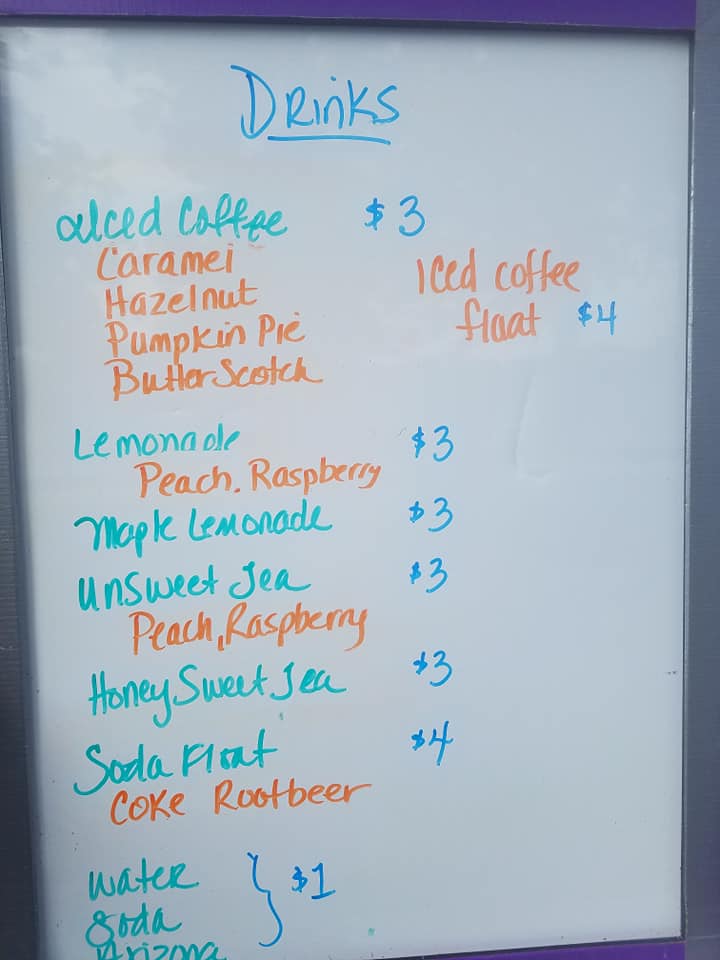 Drinks
Iced Coffee $3
Caramel
Hazelnut
Pumpkin Pie
ButterScotch
Iced coffee
float $4
Lemonade $3
Peach, Raspberry
Maple Lemonade $3
UnSweet Tea $3
Peach, Raspberry
Honey Sweet Tea $3
Soda Float $4
Coke Rootbeer
water
soda } $1
Arizona